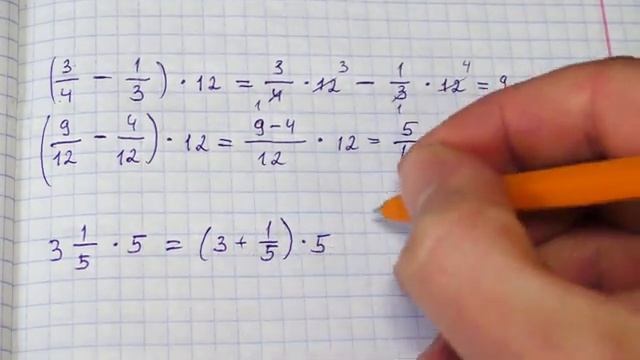 (3/4 − 1/3) · 12 = 3/4 · 12 3 − 1/3 · 12 4 = 9
(9/12 − 4/12) · 12 = (9−4)/12 · 12 = 5/1
3 1/5 · 5 = (3 + 1/5) · 5